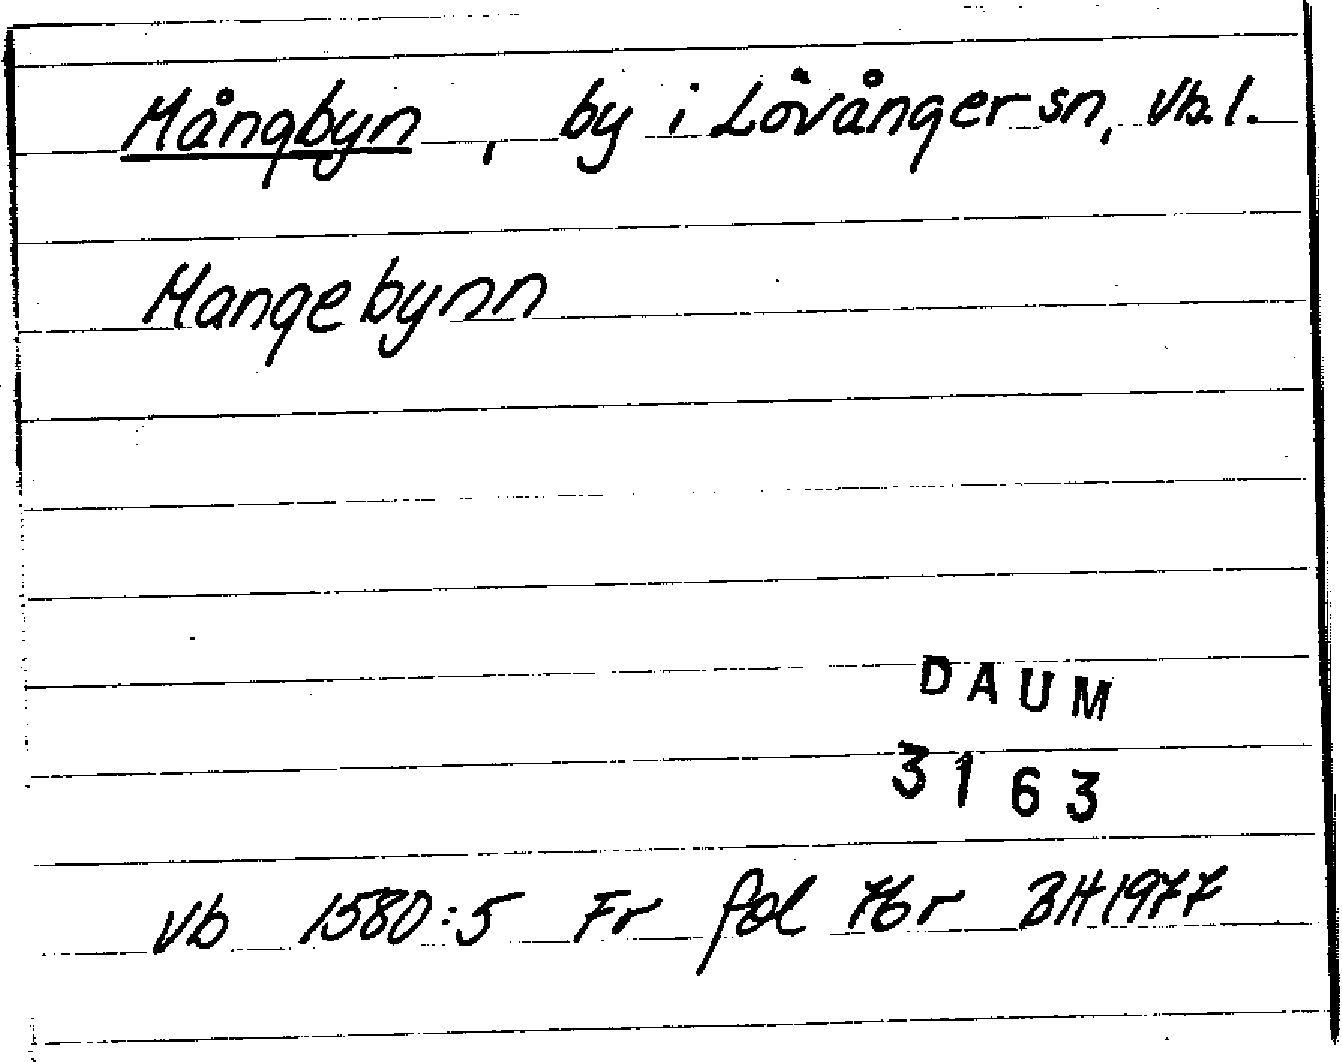 Mångbyn, by i Lövånger sn, Vb.l.
Mangebynn
DAUM
3163
Vb 1580:5 Fr fol 76r BH 1977